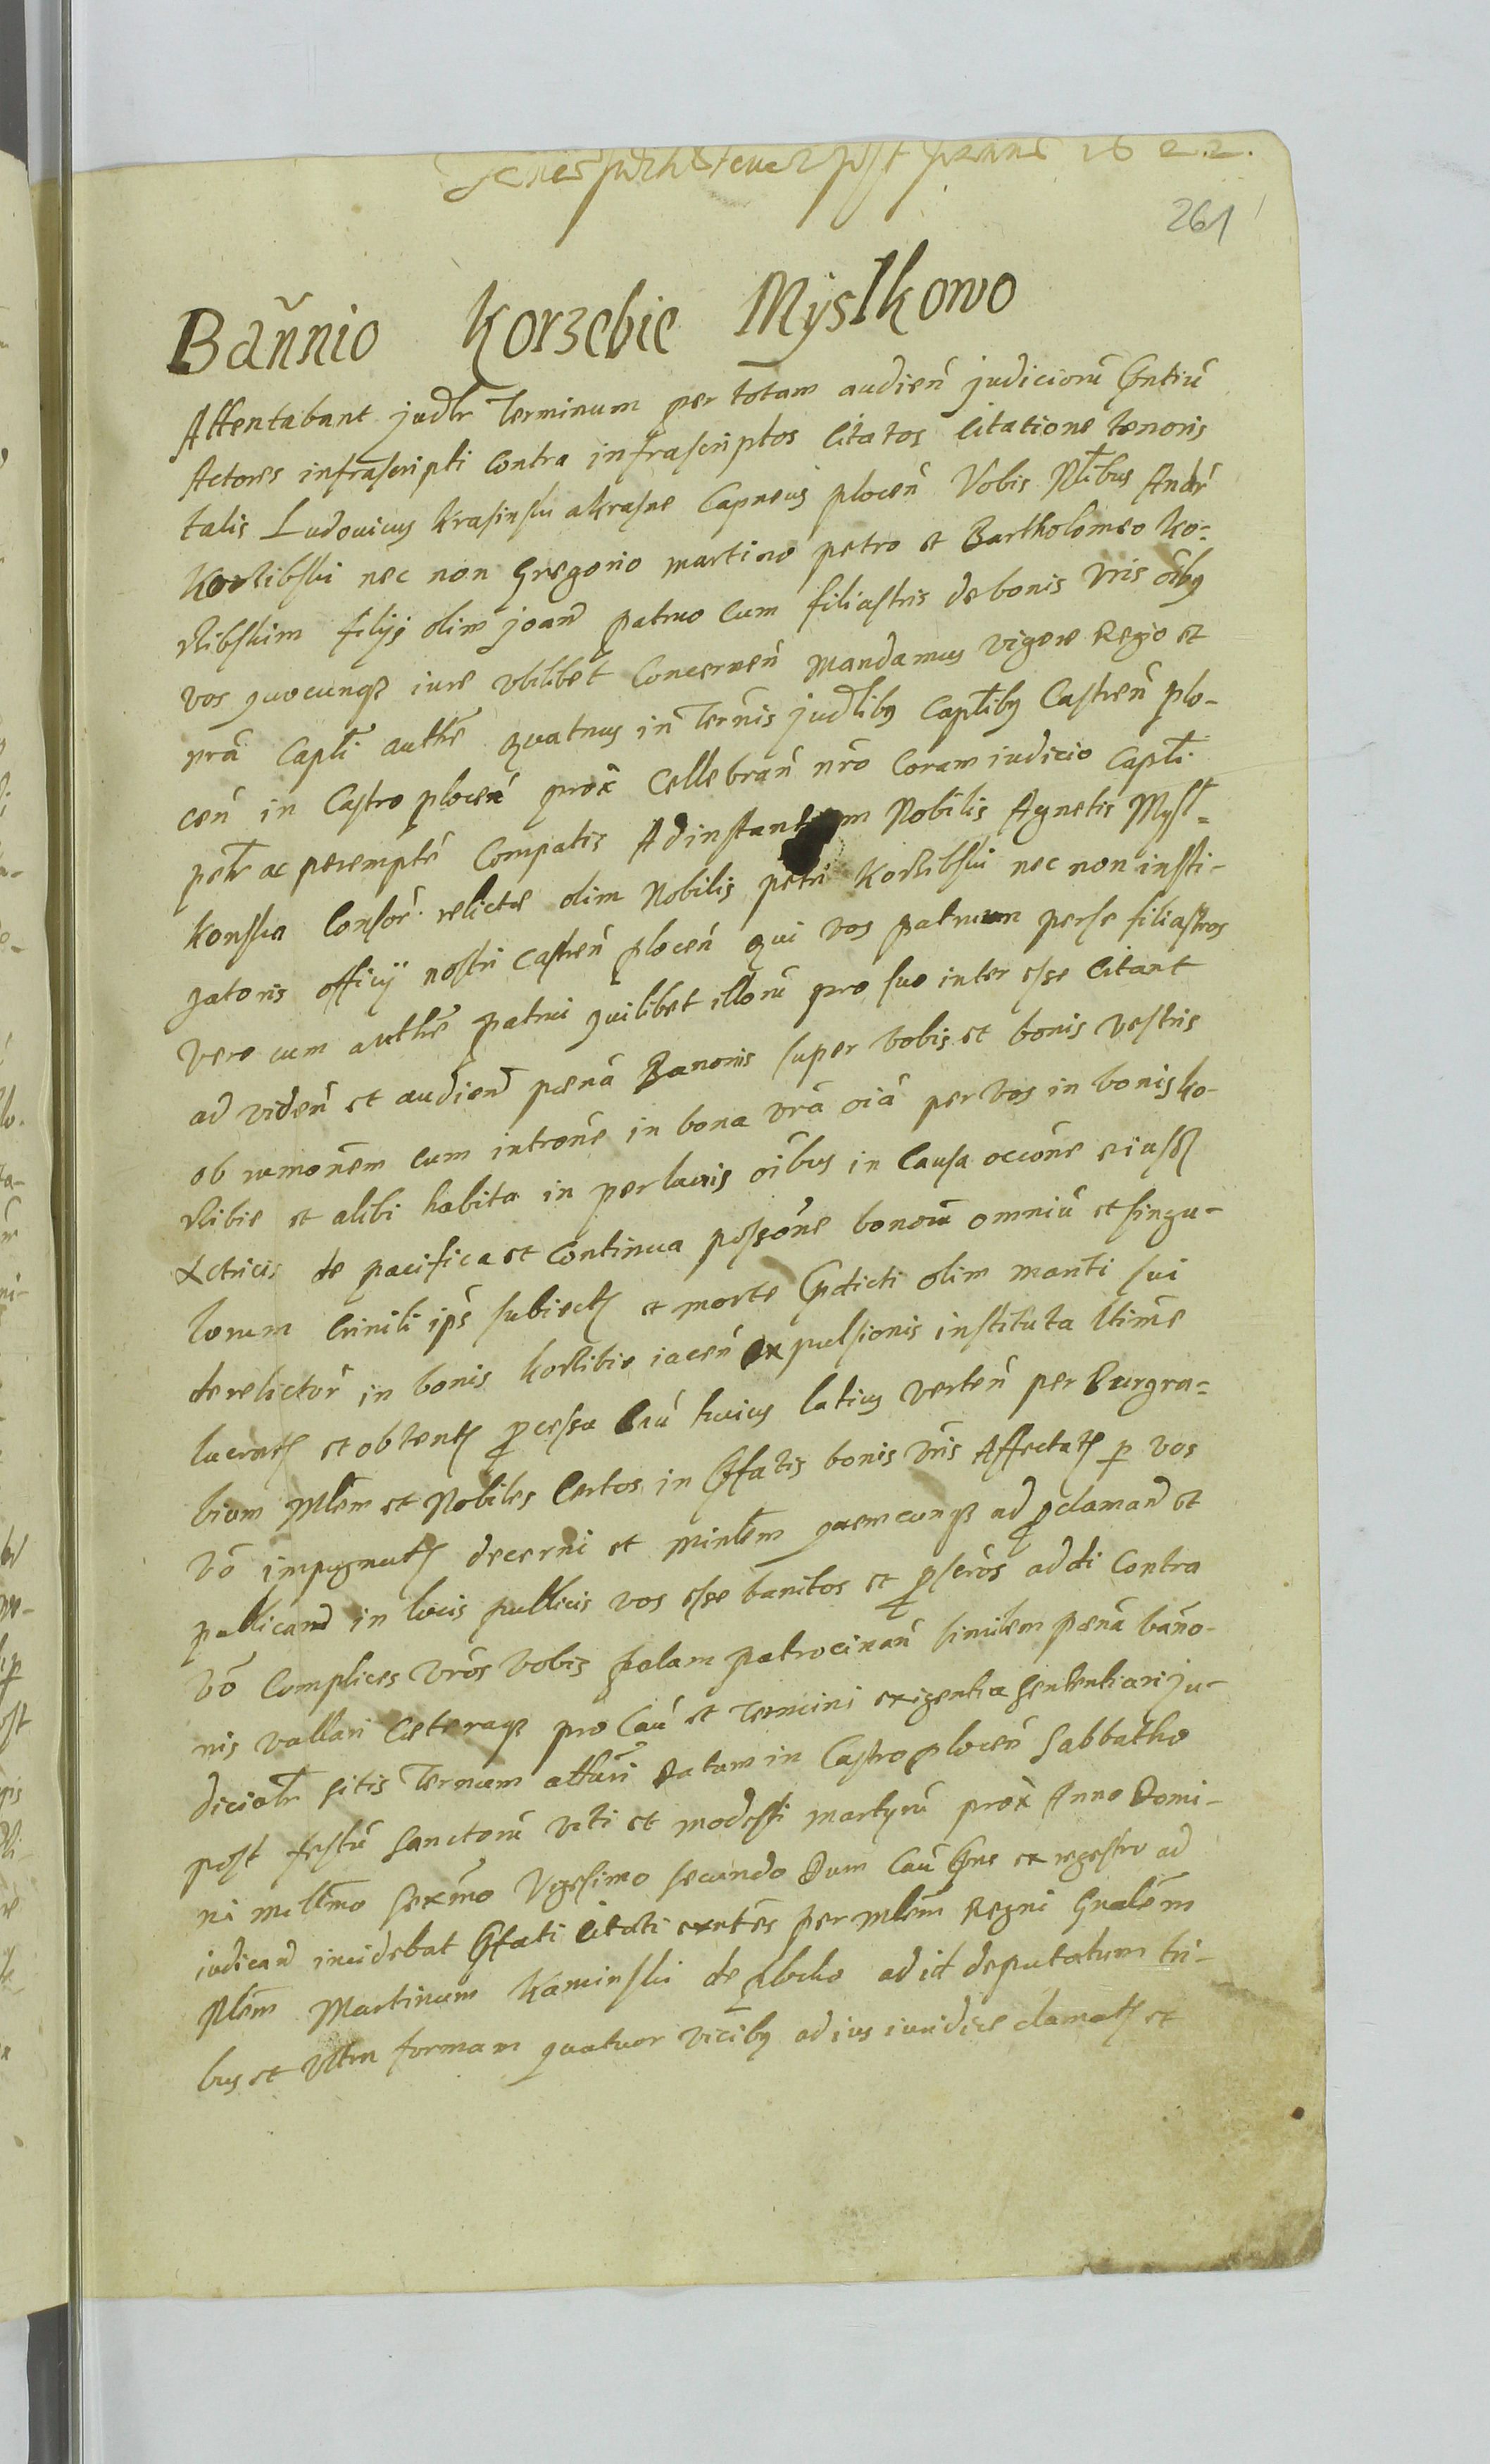 1622.
261
Bañnio Korzebie Myslkowo
Attentabant judlr Terminum per totam audień judicioru pntiu
Actores infrascripti contra infrascriptos Citatos Citatione tenoris
talis Ludovicus Krasinski a Krasne Capneus plocen Vobis Nlibus Andr
Korzibski nec non Gregorio martino petro et Bartholomeo Ko-
rzibskim filijs olim joan patruo cum filiastris de bonis vris oibus
vos quocunque iure ubilibet Concernen mandamus vigore Regio et
nra Capli authe quatnus in Ternis judlibus Captlibus Castren plo-
cen in Castro plocen prox Cellebran nro Coram iudicio Captli
petr ac perempte Compatis Ad instantiam Nobilis Agnetis Mysl-
konska Consor. relictae olim Nobilis petri Korzibski nec non insti-
gatoris officij nostri Castren plocen qui vos patruum per se filiastros
vero cum authe patrui quilibet illoru pro suo inter esse Citant
ad viden et audien paena Banonis super vobis et bonis vestris
ob rumonem cum introne in bona vra oia per vos in bonis Ko-
rzibie et alibi habita in perlucris oibus in Causa occone eiusd
Actricis de pacifica et Continua possone bonoru omniu et singu-
lorum Criniti ips subiect et morte pdicti olim mariti sui
derelictor in bonis Korzibie iacen expulsionis instituta ltime
lucrat et obtent pcessu Cau huius latius verten per Burgra-
bium Mlem et Nobiles Certos in pfatis bonis vris Affectat p vos
vo impugnat decerni et minlem quemcunque ad pclamand et
publicand in locis publicis vos esse banitos et pscros addi Contra
vo Complices vros vobis palam patrocinan similem paena bano-
nis vallari Caeteraque pro Cau et Termini exigentia sententiari ju-
diciatr sitis Ternum atturi Datum in Castro plocen Sabbatho
post festu Sanctoru viti et modesti martyru prox Anno Domi-
ni millmo Sexmo Vigesimo secundo Dum Cau pns ex regestro ad
iudicand incidebat pfati Citati extes per Mlem Regni Gnalem
Nlem Martinum Kaminski de Plocko ad id deputatum tri-
bus et Ultra formam quatuor vicibus ad ius iuridice clamat et